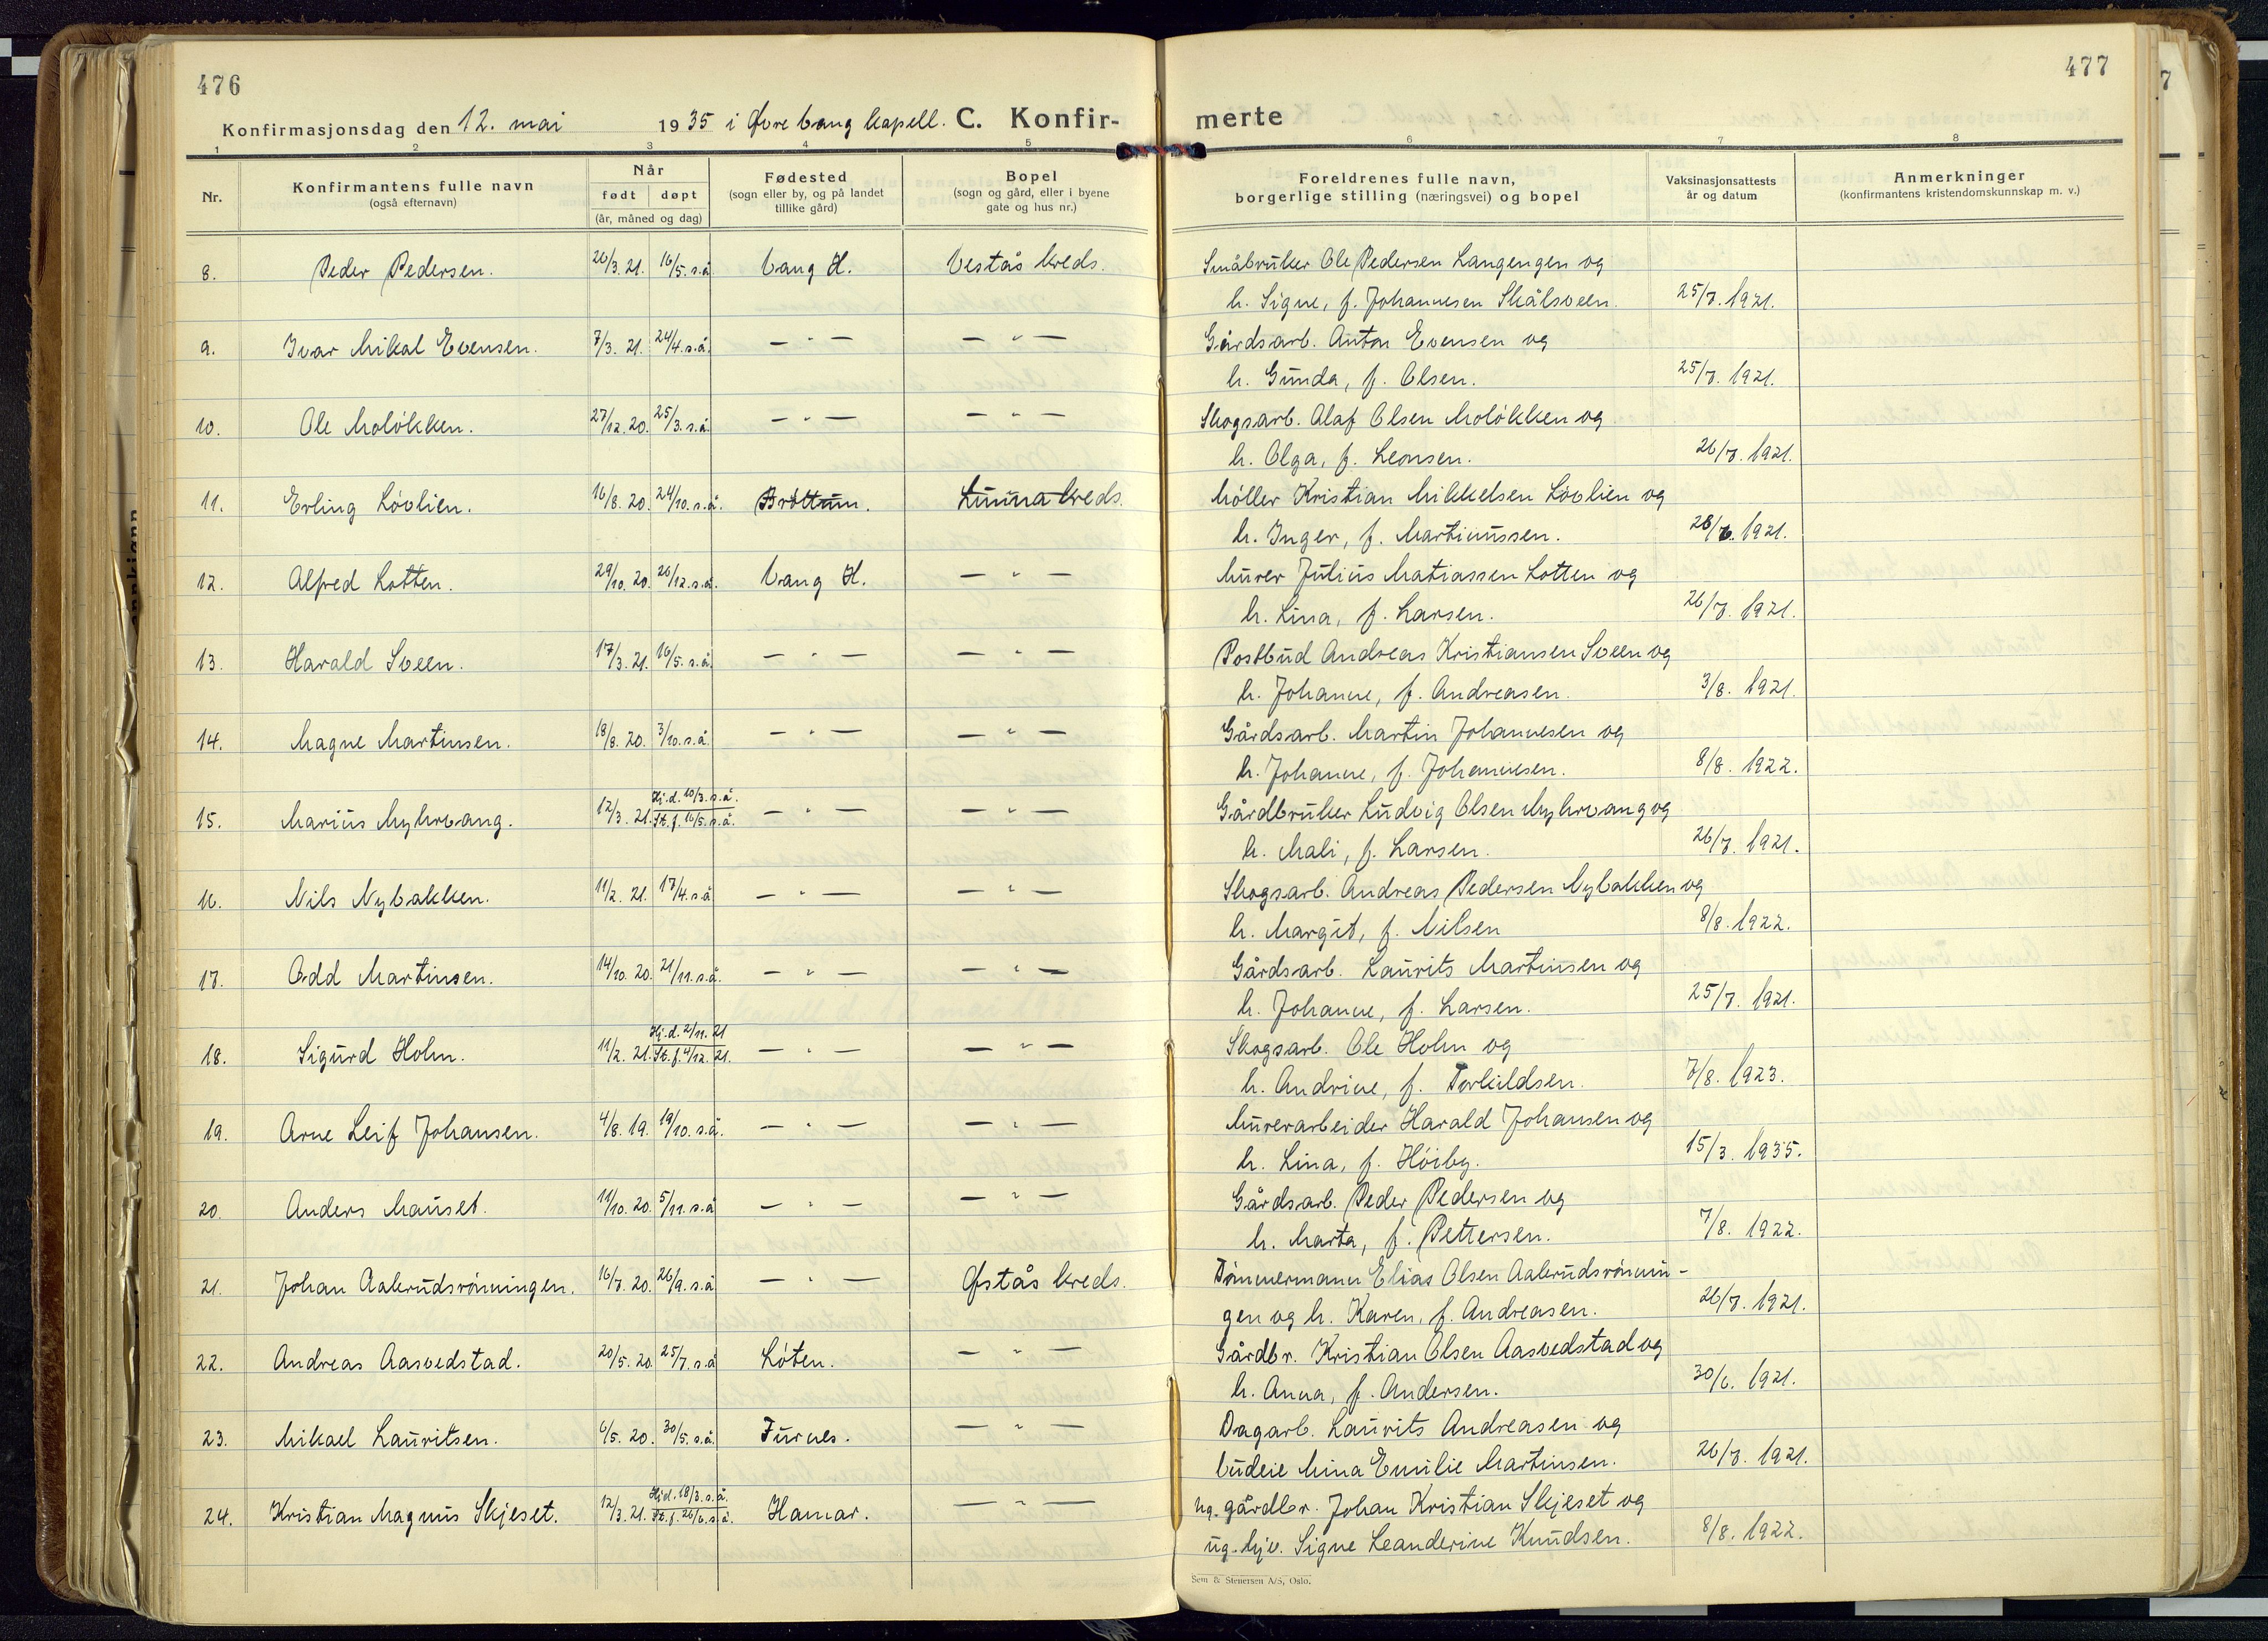 476
477
Konfirmasjonsdag den 12. mai 1935 i Øvre Vang kapell. C. Konfirmerte
1 2 3 4 5 6 7 8
Nr. | Konfirmantens fulle navn (også efternavn) | Når født | døpt (år, måned og dag) | Fødested (sogn eller by, og på landet tillike gård) | Bopel (sogn og gård, eller i byene gate og hus nr.) | Foreldrenes fulle navn, borgerlige stilling (næringsvei) og bopel | Vaksinasjonsattests år og datum | Anmerkninger (konfirmantens kristendomskunnskap m. v.)
8. Peder Pedersen. 20/3. 21. 16/5. s.å. Vang H. Vestås kreds. Småbruker Ole Pedersen Langengen og
h. Signe, f. Johannesen Skålsveen. 25/7. 1921.
9. Ivar Mikal Evensen. 7/3. 21. 24/4. s.å. — " — — " — Gårdsarb. Anton Evensen og
h. Gunda, f. Olsen. 25/7. 1921.
10. Ole Moløkken. 27/12. 20. 25/3. s.å. — " — — " — Skogsarb. Olaf Olsen Moløkken og
h. Olga, f. Leonsen. 26/7. 1921.
11. Erling Løvlien. 16/8. 20. 24/10. s.å. Brøttum. Linna kreds. Møller Kristian Mikkelsen Løvlien og
h. Inger, f. Martinussen. 28/6. 1921.
12. Alfred Lotten. 29/10. 20. 26/12. s.å. Vang H. — " — Murer Julius Matiassen Lotten og
h. Lina, f. Larsen. 26/7. 1921.
13. Harald Sveen. 17/3. 21. 16/5. s.å. — " — — " — Postbud Andreas Kristiansen Sveen og
h. Johanne, f. Andreasen. 3/8. 1921.
14. Magne Martinsen. 18/8. 20. 3/10. s.å. — " — — " — Gårdsarb. Martin Johannesen og
h. Johanne, f. Johannesen. 8/8. 1922.
15. Marius Myhrvang. 12/3. 21. Hj.d. 10/3. s.å. St. f. 16/5. s.å. — " — — " — Gårdbruker Ludvig Olsen Myhrvang og
h. Mali, f. Larsen. 26/7. 1921.
16. Nils Nybakken. 11/2. 21. 17/4. s.å — " — — " — Skogsarb. Andreas Pedersen Nybakken og
h. Margit, f. Nilsen 8/8. 1922.
17. Odd Martinsen. 14/10. 20. 21/11. s.å. — " — — " — Gårdsarb. Laurits Martinsen og
h. Johanne, f. Larsen. 25/7. 1921.
18. Sigurd Holm. 11/2. 21. Hj.d. 2/11. 21 St. f. 4/12. 21. — " — — " — Skogsarb. Ole Holm og
h. Andrine, f. Torkildsen. 7/8. 1923.
19. Arne Leif Johansen. 4/8. 19. 19/10. s.å. — " — — " — Murerarbeider Harald Johansen og
h. Lina, f. Høiby. 15/3. 1935.
20. Anders Mauset. 11/10. 20. 5/11. s.å — " — — " — Gårdsarb. Peder Pedersen og
h. Marta, f. Pettersen. 7/8. 1922.
21. Johan Aakerudsrønningen. 16/7. 20. 26/9. s.å — " — Østås kreds. Tømmermann Elias Olsen Aakerudsrønnin-
gen og h. Karen, f. Andreasen. 26/7. 1921.
22. Andreas Aasvedstad. 20/5. 20. 25/7. s.å Løten. — " — Gårdbr. Kristian Olsen Aasvedstad og
h. Anna, f. Andersen. 30/6. 1921.
23. Mikael Lauritsen. 6/5. 20. 30/5. s.å. Furnes. — " — Dagarb. Laurits Andreasen og
budeie Mina Emilie Martinsen. 26/7. 1921.
24. Kristian Magnus Skjeset. 12/3. 21. Hjd. 18/3. s.å. St. f. 26/6. s.å. Hamar. — " — ug. gårdbr. Johan Kristian Skjeset og
ug. hjv. Signe Leanderine Knudsen. 8/8. 1922.
Sem & Stenersen A/S, Oslo.